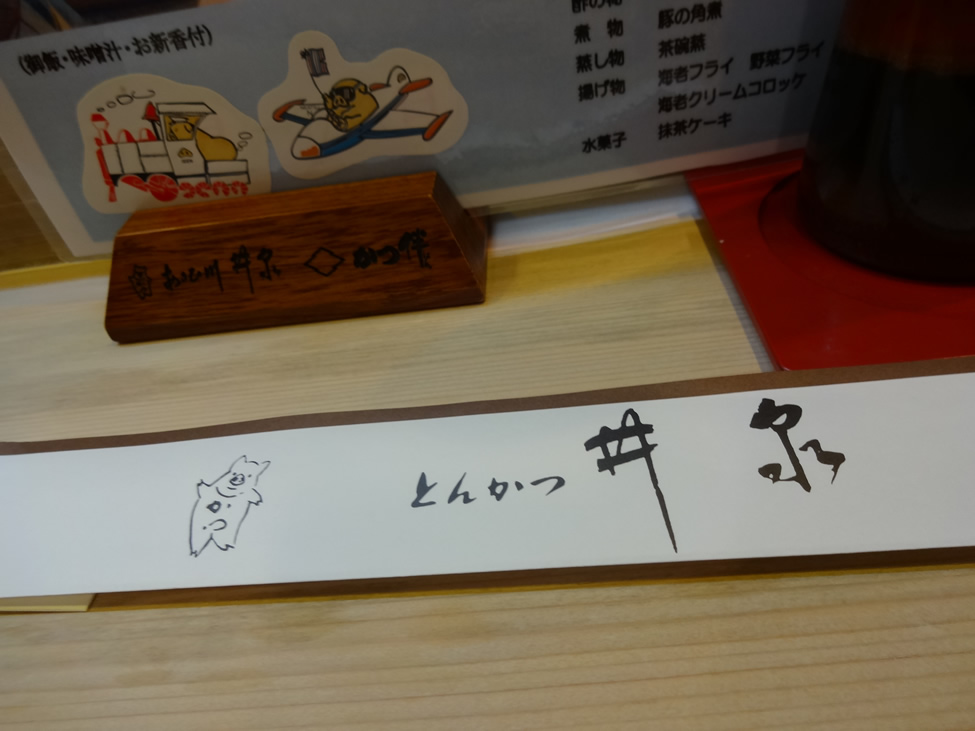 (御飯・味噌汁・お新香付)
酢の物
煮物 豚の角煮
蒸し物 茶碗蒸
揚げ物 海老フライ 野菜フライ
海老クリームコロッケ
水菓子 抹茶ケーキ
井泉 かつ
とんかつ 井泉
かつ